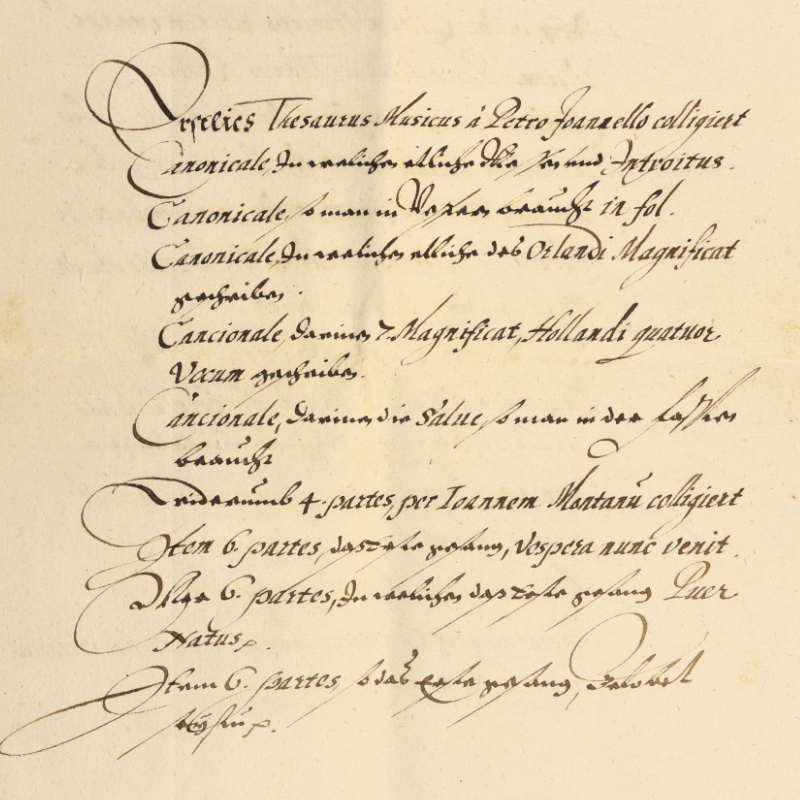 Thesaurus Musicus á Petro Joannello colligiert
Canonicale, In welichen etliche und Introitus.
Canonicale, so man in braucht in fol.
Canonicale, In welichen etliche des Orlandi Magnificat
gschriben.
Cancionale, darinen 7 Magnificat, Hollandi quatuor
Vocum gschriben.
Cancionale, darinen die Salue so man in der fassten
braucht
Widerumb 4. partes, per Ioannem Montanũ colligiert
Item 6. partes, das erste gesang, Vespera nunc venit.
6. partes, In welichen das erste gesang Puer
Natus
Item 6. partes, so das erste gesang, Gelobet